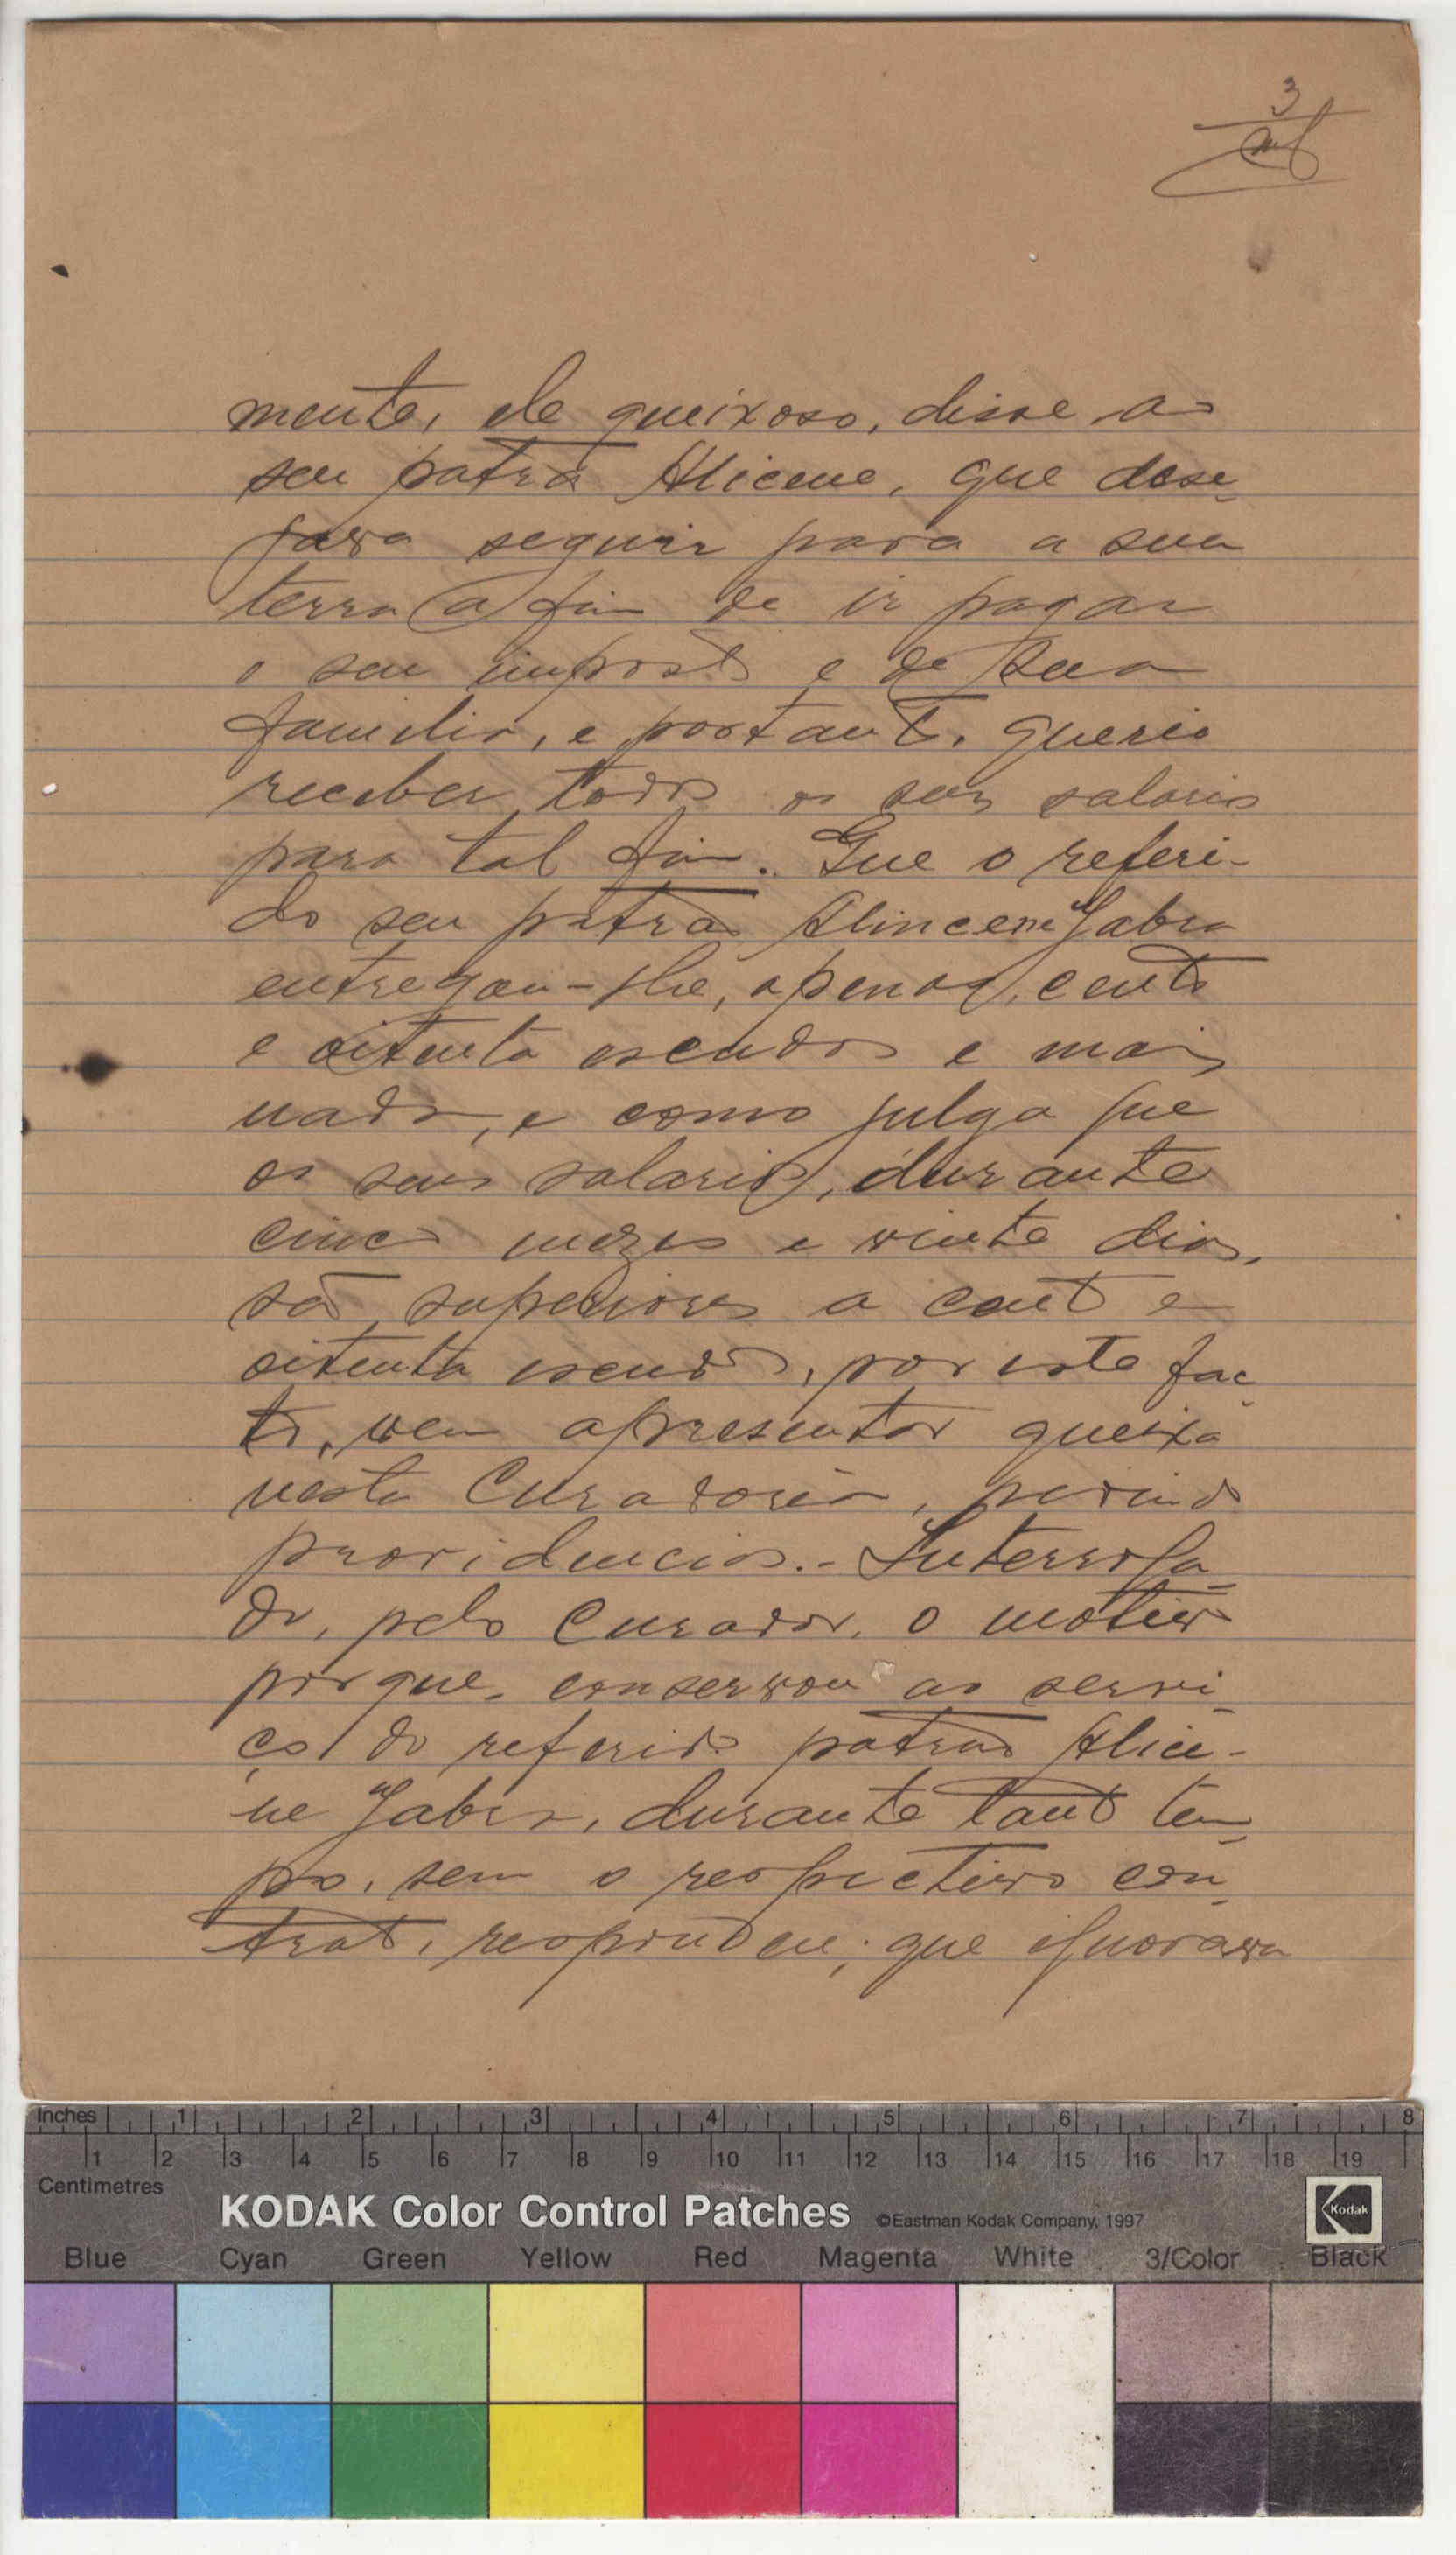 3
mente, ele queixoso, disse ao
seu patrão Alicene, que dese-
java seguir para a sua
terra a fim de ir pagar
o seu imposto e de sua
familia, e portanto, queria
receber todos os seus salarios
para tal fim. Que o referi-
do seu patrão Alincene Jabra
entregou-lhe, apenas, cento
e oitenta escudos e mais
nada, e como julga que
os seus salarios, durante
cinco mezes e vinte dias,
são superiores a cento e
oitenta escudos, por este fac-
to, vem apresentar queixa
nesta Curadoria, pedindo
providencias.- Interroga-
do, pelo Curador, o motivo
porque, conservou ao servi-
ço do referido patrão Alice-
ne Jabra, durante tanto tem-
po, sem o respectivo con-
trato, respondeu; que ignorava
Inches 1 2 3 4 5 6 7 8
1 2 3 4 5 6 7 8 9 10 11 12 13 14 15 16 17 18 19
Centimetres
KODAK Color Control Patches ©Eastman Kodak Company, 1997 Kodak
Blue Cyan Green Yellow Red Magenta White 3/Color Black